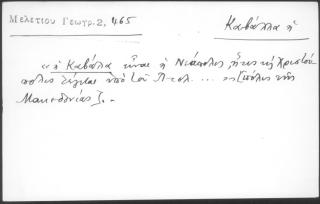 Μελετίου Γεωγρ. 2, 465
Καβάλλα ἡ
"ἡ Καβάλα εἶναι ἡ Νεάπολις, ἥτις καὶ Χριστού-
πολις λέγεται ὑπὸ τοῦ Πτολ. ... " [πόλις τῆς
Μακεδονίας]. -